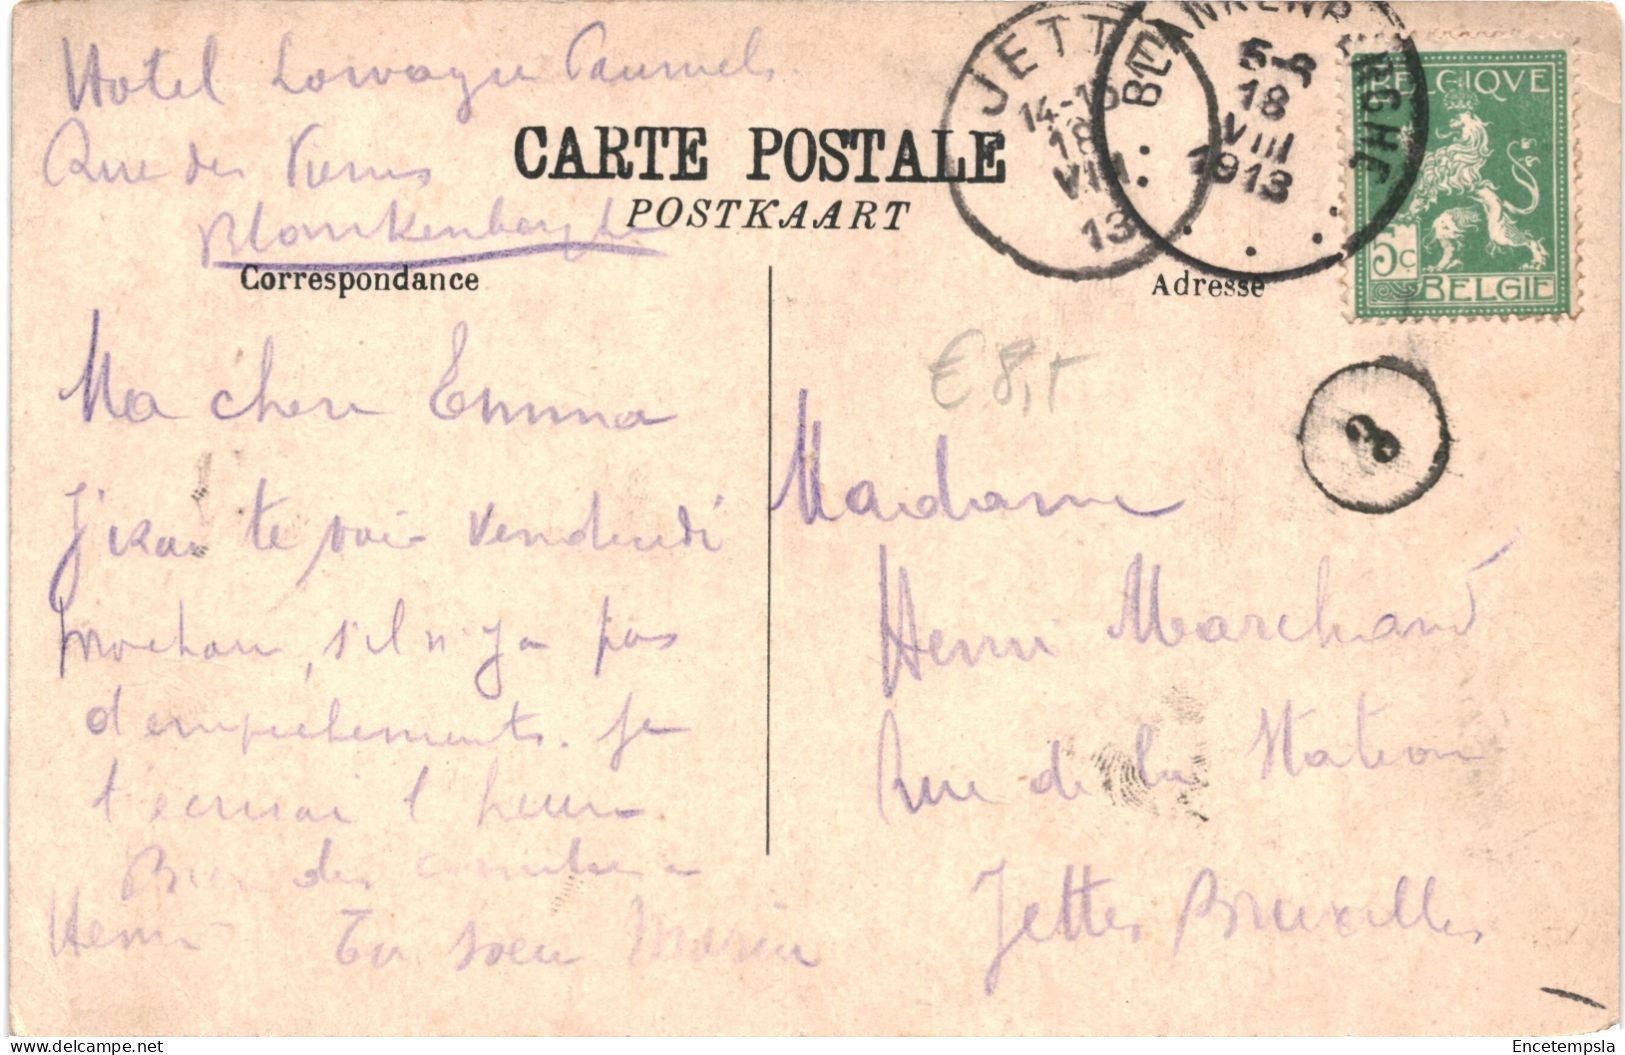 Hotel Lowagie Pauwels
Rue des
Blankenberghe
CARTE POSTALE
POSTKAART
Correspondance
Adresse
JETTE
14-15
18
VIII
13
BLANKENBERGHE
18
VIII
1913
BELGIQUE
5c
BELGIE
€ 8,-
8
Ma chere Emma
J'irai te voir Vendredi
prochain, s'il n'y a pas
d'empêchements. Je
t'écrirai l'heure
Bien des
Henri Ta soeur Maria
Madame
Henri Marchand
Rue de la Station
Jette Bruxelles
Encetempsla